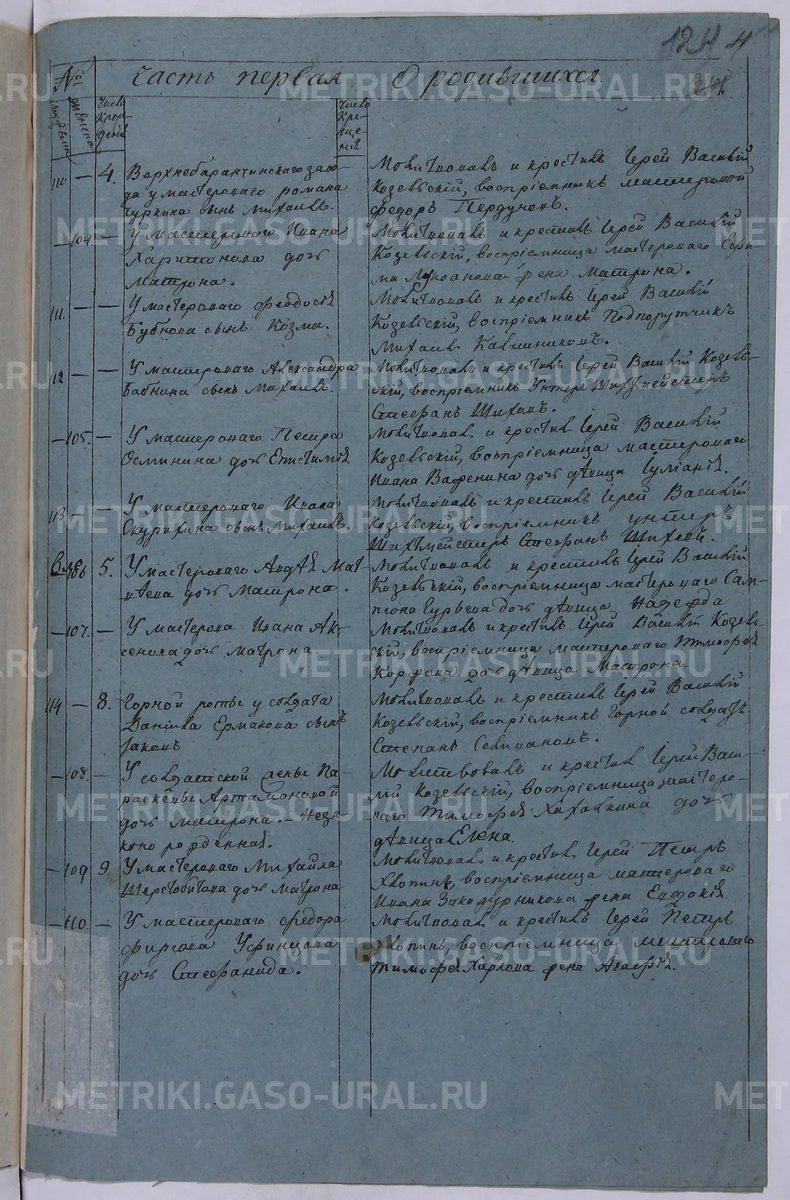 124
№
Часть первая О родившихся
мужеска
женска
Число
рож-
деній
Число
кре-
ще-
нія
110 — 4. Верхнебаранчинскаго заво-
да у мастероваго романа
Чуркина сынъ Михаилъ.
Молитвовалъ и крестилъ Іерей Василій
Козевскій, воспріемникъ мастеровой
Федоръ
— 104 — У мастероваго Ивана
Харитонова дочь
Матрона.
Молитвовалъ и крестилъ Іерей Василій
Козевскій, воспріемница мастероваго
жена Матрона.
111. — — У мастероваго Феодосія
Бубнова сынъ Козма.
Молитвовалъ и крестилъ Іерей Василій
Козевскій, воспріемникъ Подпорутчикъ
Михаилъ
112 — — У мастероваго Александра
Бабкина сынъ Михаилъ.
Молитвовалъ и крестилъ Іерей Василій Козев-
скій, воспріемникъ Унтеръ Шихтмейстеръ
Стефанъ Шиховъ.
— 105. — У мастероваго Петра
Осминина дочь Евстолія
Молитвовалъ и крестилъ Іерей Василій
Козевскій, воспріемница мастероваго
Ивана Важенина дочь дѣвица Іуліанія.
113 — — У мастероваго Ивана
Скурихина сынъ Михаилъ.
Молитвовалъ и крестилъ Іерей Василій
Козевскій, воспріемникъ унтеръ
Шихтмейстеръ Стефанъ Шиховъ.
106 5. У мастероваго Мат-
вѣева дочь Матрона.
Молитвовалъ и крестилъ Іерей Василій
Козевскій, воспріемница мастероваго Сам-
псона Гурьева дочь дѣвица Надежда
— 107. — У мастерова Ивана Ак-
сенова дочь Матрона
Молитвовалъ и крестилъ Іерей Василій Козев-
скій, воспріемница мастероваго Тимофея
дочь дѣвица Матрона.
114 — 8. Горной роты у солдата
Данила Ермакова сынъ
Іаковъ
Молитвовалъ и крестилъ Іерей Василій
Козевскій, воспріемникъ Горной солдатъ
Степанъ Селивановъ.
— 108. — У солдатской жены Па-
раскевы Артамоновой
дочь Матрона. — Неза-
коно рожденная.
Молитвовалъ и крестилъ Іерей Васи-
лій Козевскій, воспріемница мастеро-
ваго Тимофея дочь
дѣвица Елена
— 109 9. У мастероваго Михайла
Шерстобитова дочь Матрона
Молитвовалъ и крестилъ Іерей Петръ
Хлопинъ, воспріемница мастероваго
Ивана жена Евдокія
— 110. — У мастероваго Федора
Фирсова Уфинцова
дочь Стефанида.
Молитвовалъ и крестилъ Іерей Петръ
Хлопинъ воспріемница мастероваго
Тимофея Харлова жена Агафія.
METRIKI.GASO-URAL.RU